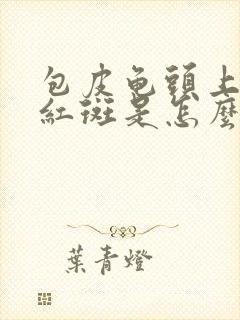 包皮龟頭上
紅斑是怎麼
葉青燈